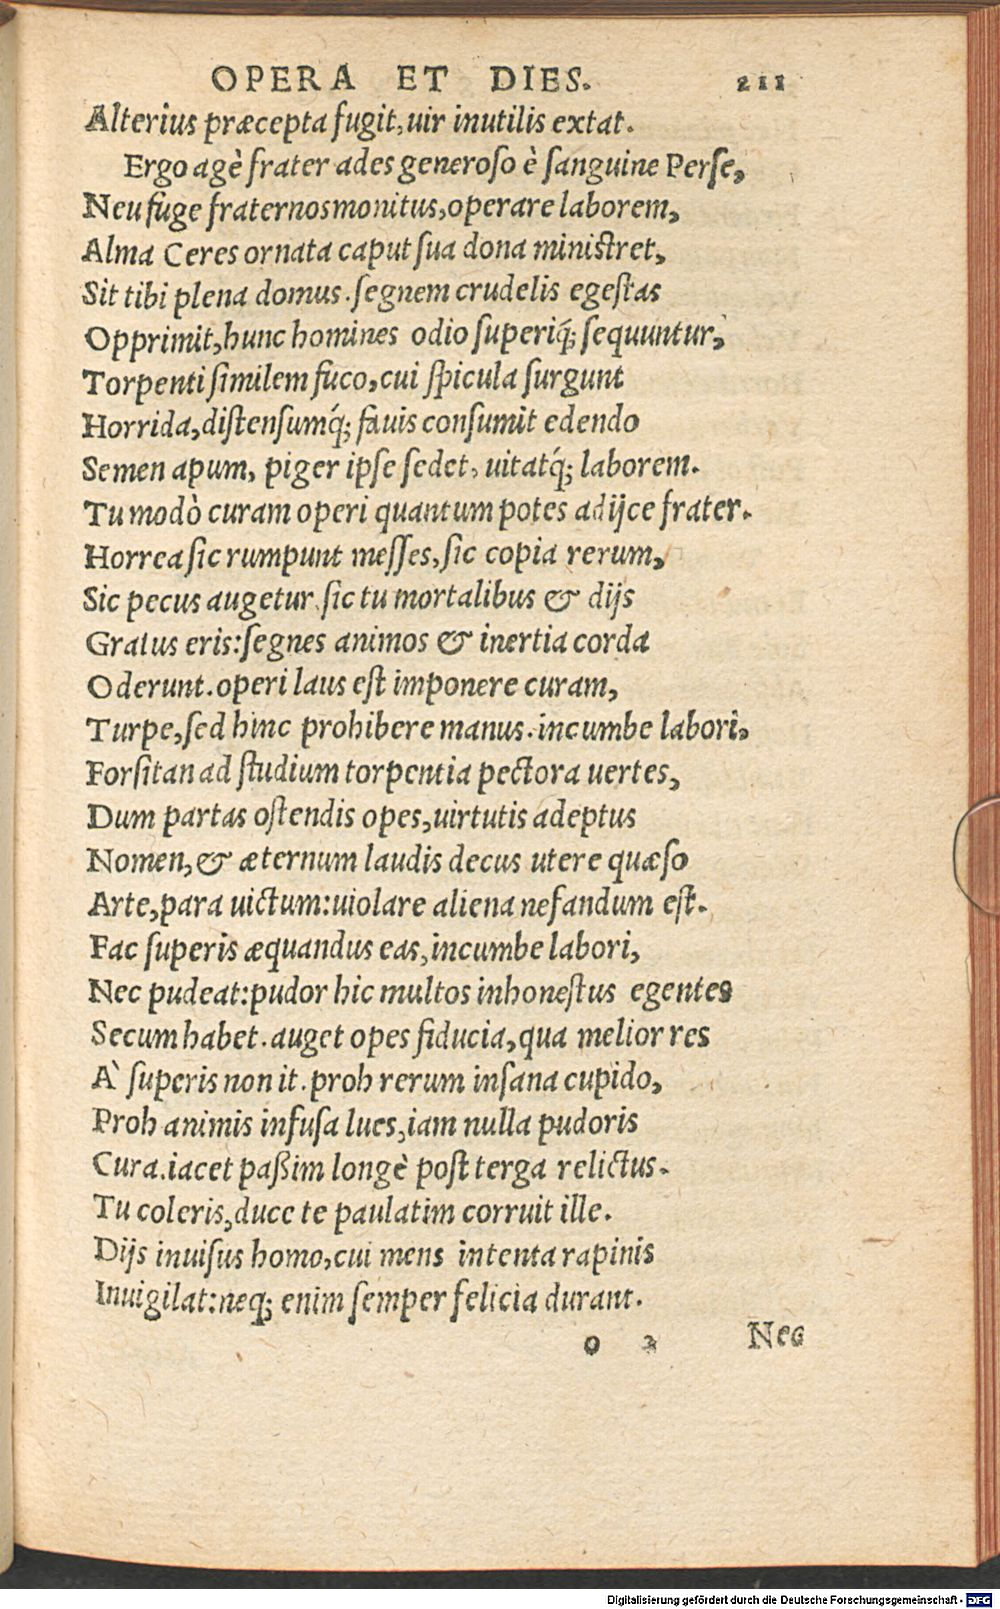 OPERA ET DIES. 211
Alterius præcepta fugit, uir inutilis extat.
Ergo agè frater ades generoso è sanguine Perse,
Neu fuge fraternos monitus, operare laborem,
Alma Ceres ornata caput sua dona ministret,
Sit tibi plena domus. segnem crudelis egestas
Opprimit, hunc homines odio superiq́; sequuntur,
Torpenti similem fuco, cui spicula surgunt
Horrida, distensumq́; fauis consumit edendo
Semen apum, piger ipse sedet, uitatq́; laborem.
Tu modò curam operi quantum potes adijce frater.
Horrea sic rumpunt messes, sic copia rerum,
Sic pecus augetur. sic tu mortalibus & dijs
Gratus eris: segnes animos & inertia corda
Oderunt. operi laus est imponere curam,
Turpe, sed hinc prohibere manus. incumbe labori,
Forsitan ad studium torpentia pectora uertes,
Dum partas ostendis opes, uirtutis adeptus
Nomen, & æternum laudis decus utere quæso
Arte, para uictum: uiolare aliena nefandum est.
Fac superis æquandus eas, incumbe labori,
Nec pudeat: pudor hic multos inhonestus egentes
Secum habet. auget opes fiducia, qua melior res
À superis non it. proh rerum insana cupido,
Proh animis infusa lues, iam nulla pudoris
Cura. iacet paßim longè post terga relictus.
Tu coleris, duce te paulatim corruit ille.
Dijs inuisus homo, cui mens intenta rapinis
Inuigilat: neq; enim semper felicia durant.
o 2 Nec
Digitalisierung gefördert durch die Deutsche Forschungsgemeinschaft - DFG